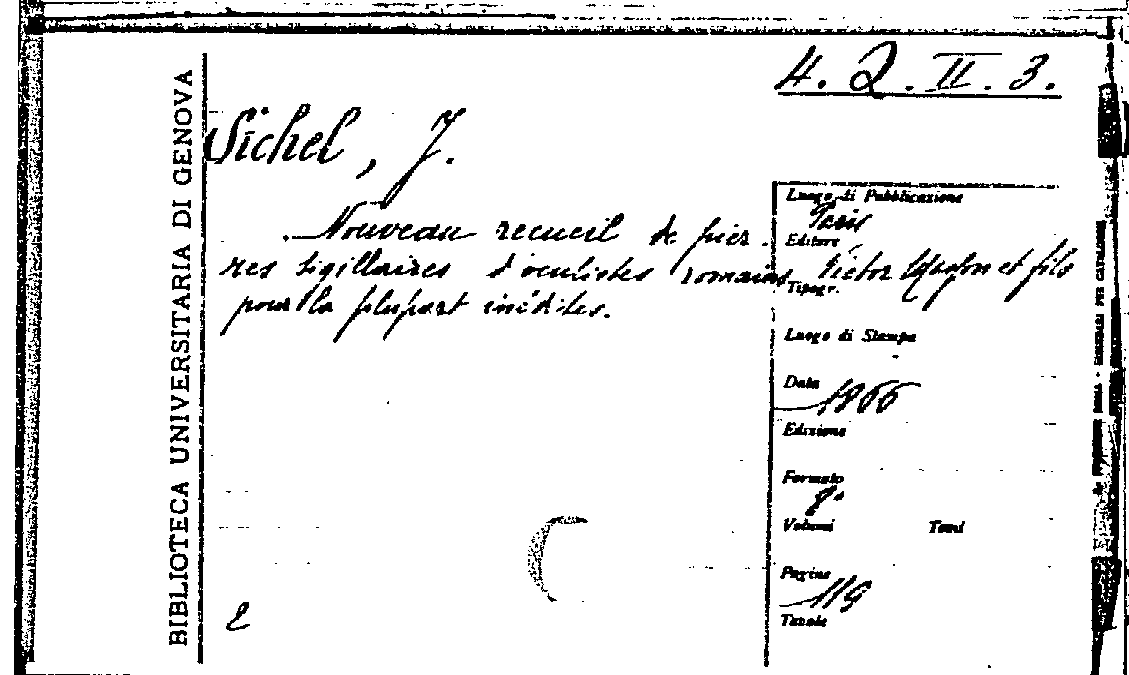 4. 2. II. 3.
BIBLIOTECA UNIVERSITARIA DI GENOVA
Sichel, J.
Nouveau recueil de pier-
res sigillaires d'oculistes romains
pour la plupart inédites.
Luogo di Pubblicazione
Paris
Editore
Victor et fils
Tipogr.
Luogo di Stampa
Data
1866
Edizione
Formato
8°
Volumi Tomi
Pagine
119
Tavole
2